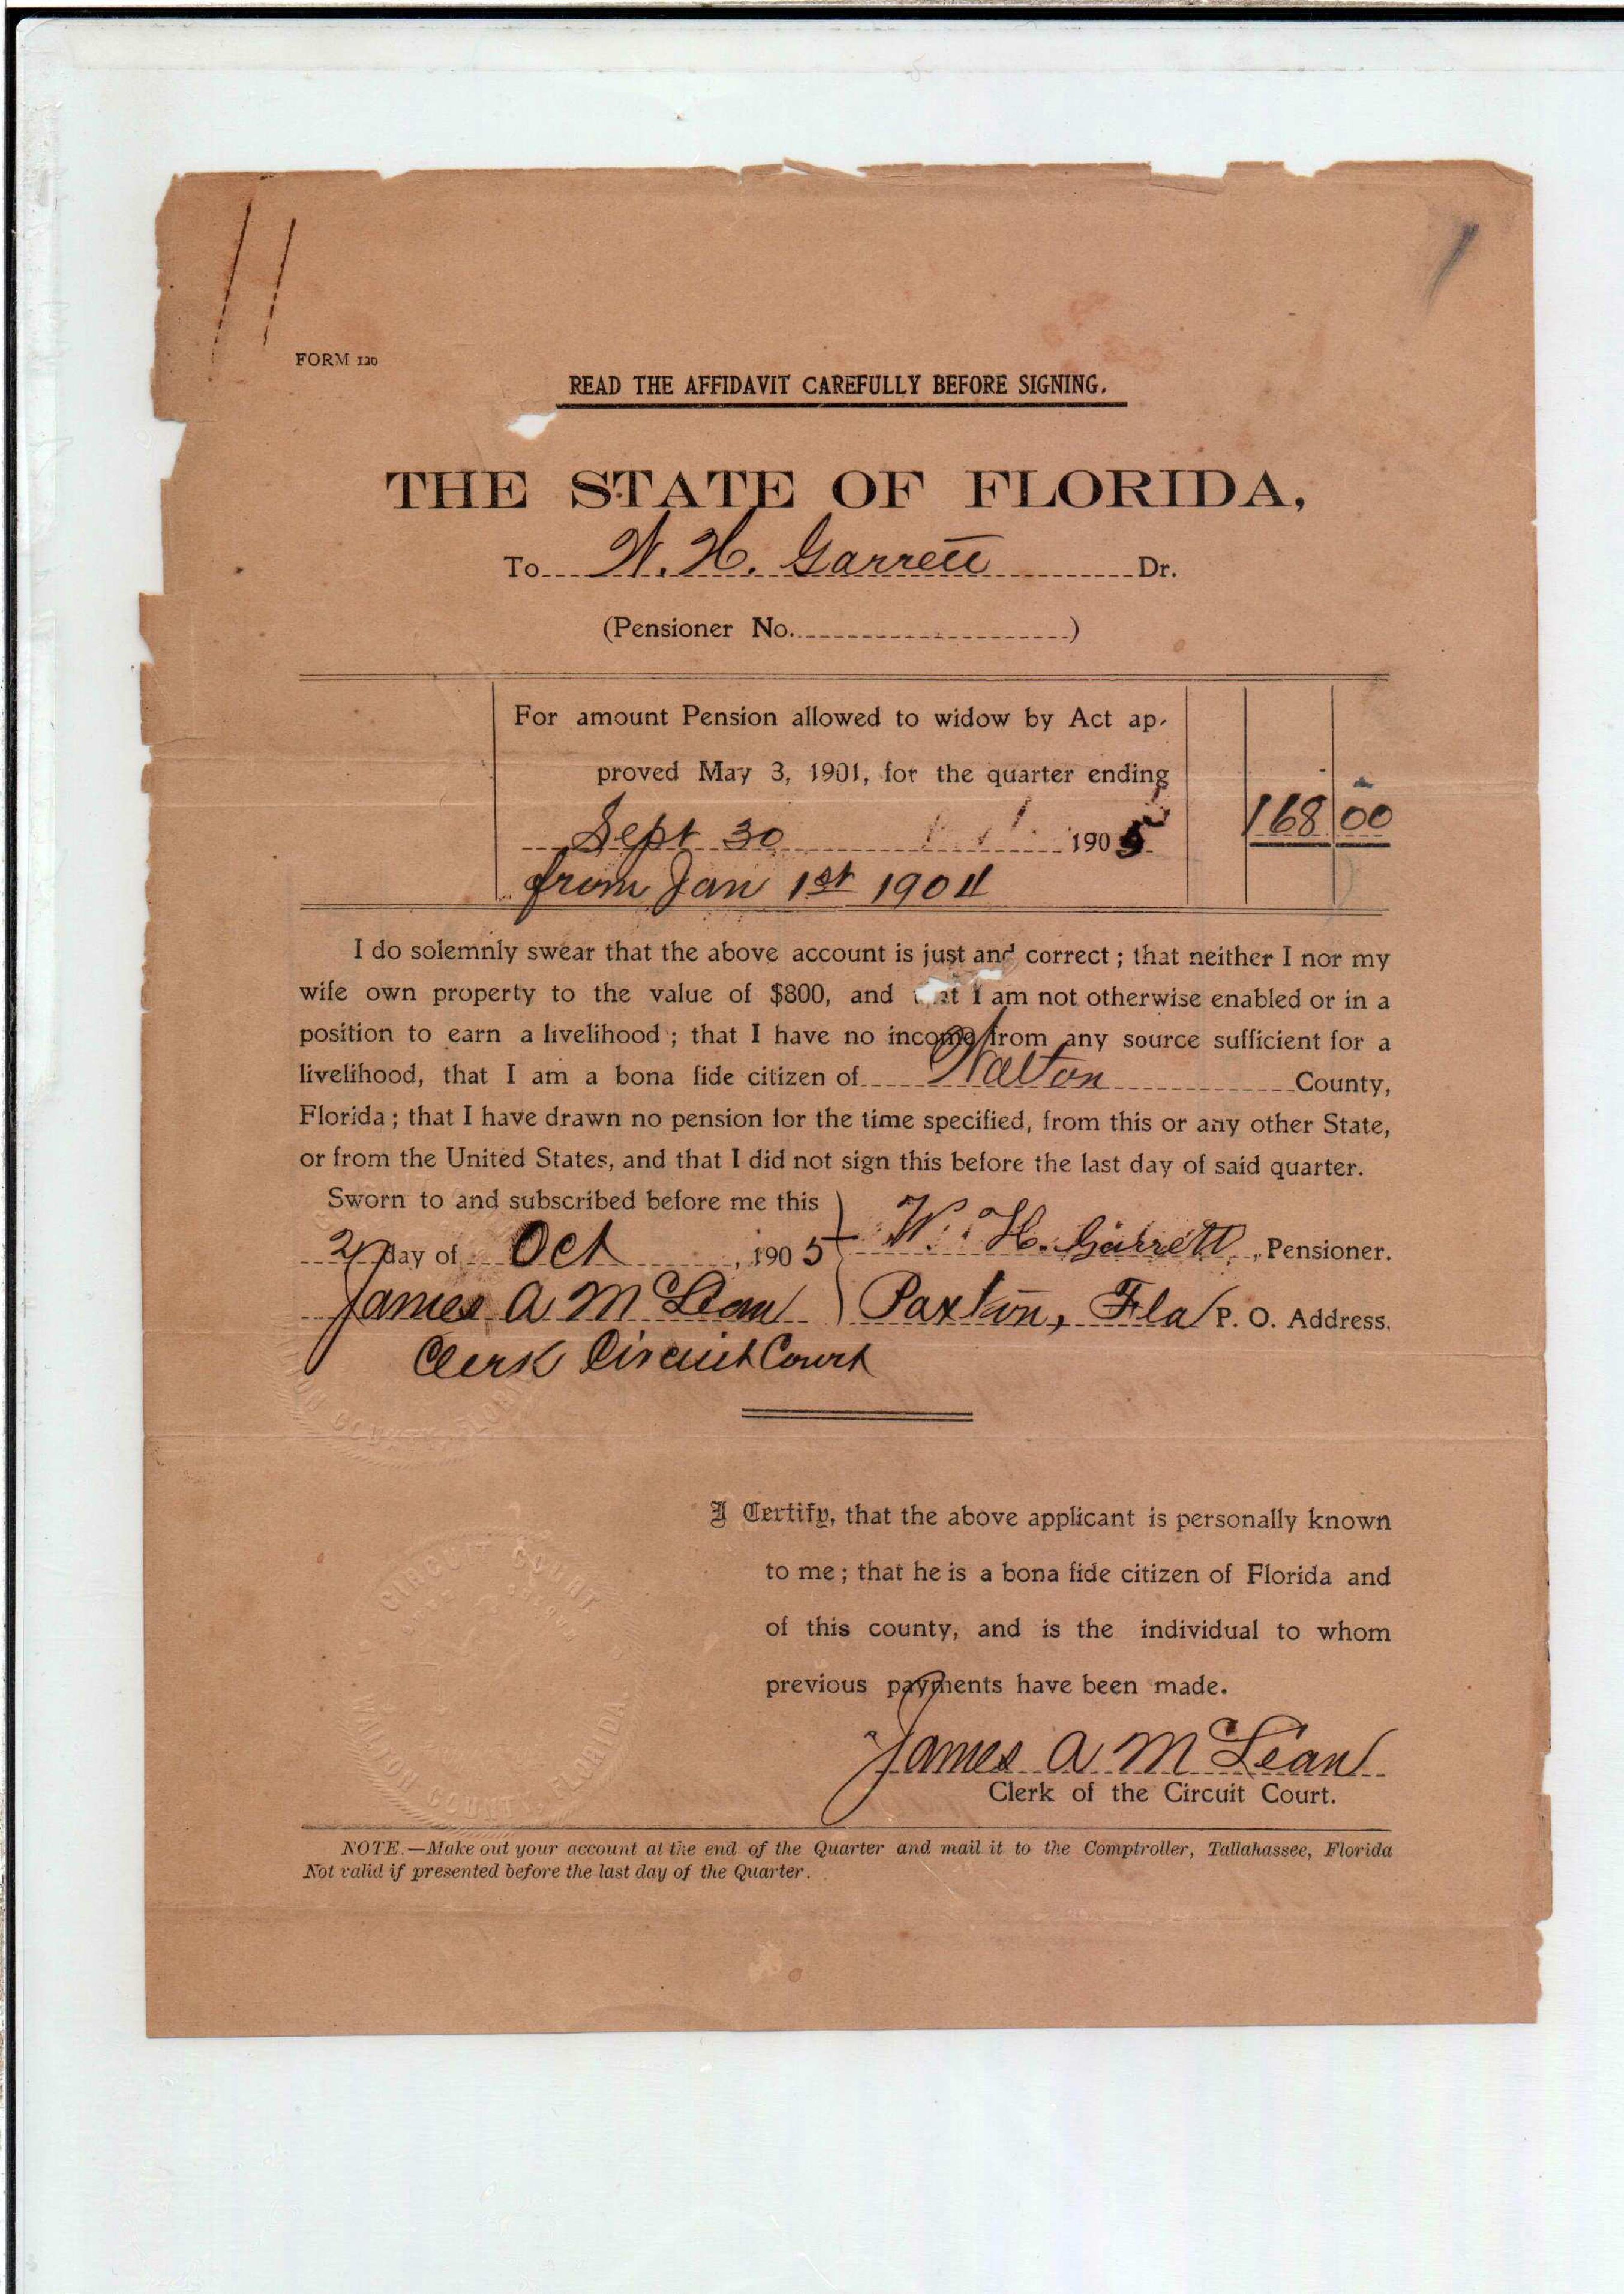 FORM 130
READ THE AFFIDAVIT CAREFULLY BEFORE SIGNING.
THE STATE OF FLORIDA,
To W. H. Garrett Dr.
(Pensioner No. )
For amount Pension allowed to widow by Act ap-
proved May 3, 1901, for the quarter ending
Sept 30 1905
168 00
from Jan 1st 1904
I do solemnly swear that the above account is just and correct; that neither I nor my
wife own property to the value of $800, and that I am not otherwise enabled or in a
position to earn a livelihood; that I have no income from any source sufficient for a
livelihood, that I am a bona fide citizen of Walton County,
Florida; that I have drawn no pension for the time specified, from this or any other State,
or from the United States, and that I did not sign this before the last day of said quarter.
Sworn to and subscribed before me this
2 day of Oct, 1905
W. H. Garrett, Pensioner.
James A McLean
Paxton, Fla P. O. Address.
Clerk Circuit Court
I Certify, that the above applicant is personally known
to me; that he is a bona fide citizen of Florida and
of this county, and is the individual to whom
previous payments have been made.
CIRCUIT COURT
WALTON COUNTY FLORIDA.
James A McLean
Clerk of the Circuit Court.
NOTE.—Make out your account at the end of the Quarter and mail it to the Comptroller, Tallahassee, Florida
Not valid if presented before the last day of the Quarter.